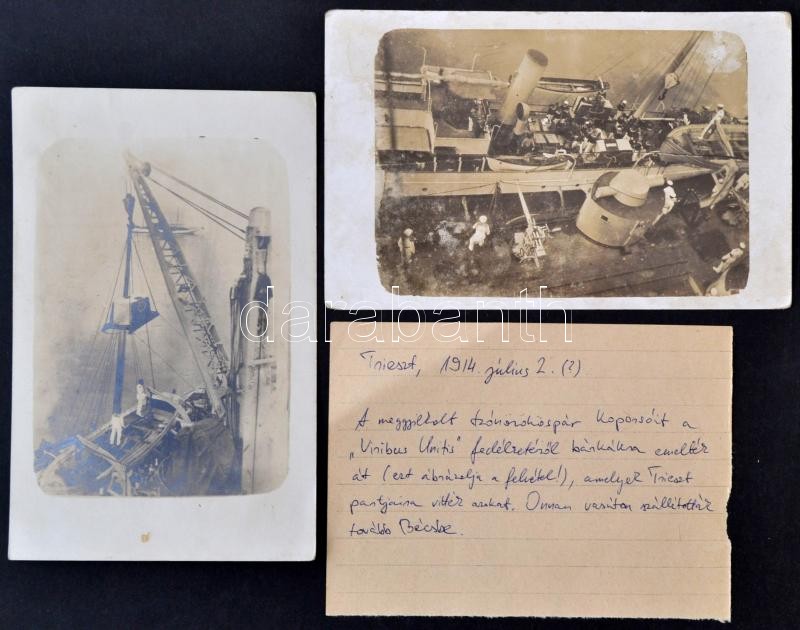 darabanth
Trieszt, 1914. július 2. (?)
A meggyilkolt trónörököspár koporsóit a
„Viribus Unitis" fedélzetéről bárkákra emelték
át (ezt ábrázolja a felvétel!), amelyek Trieszt
partjaira vitték azokat. Onnan vasúton szállították
tovább Bécsbe.